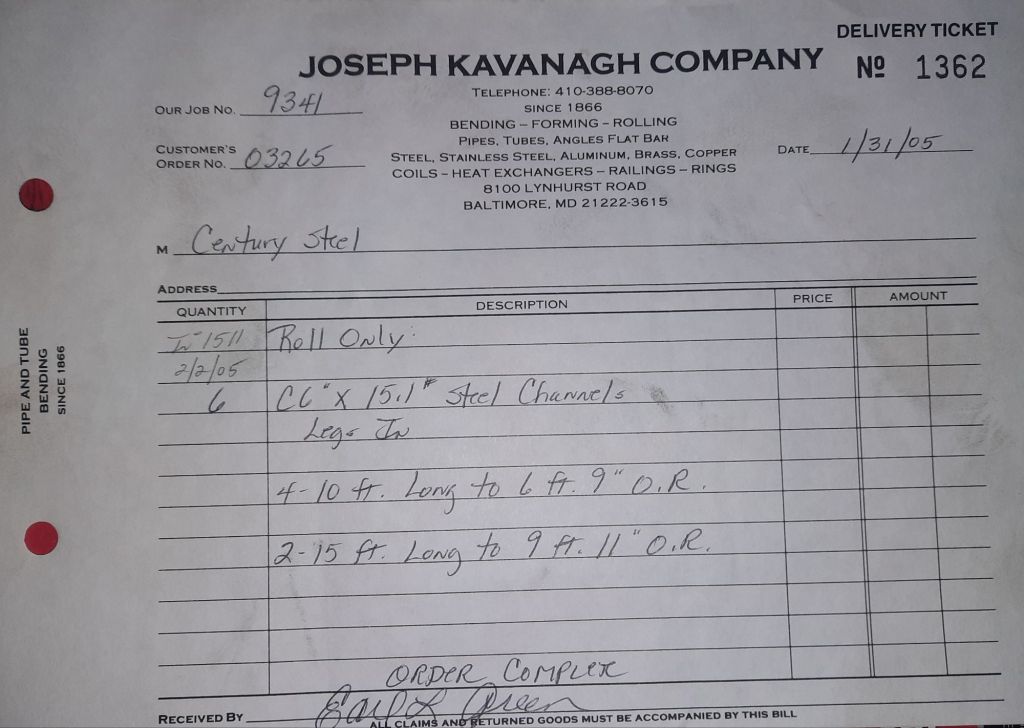 DELIVERY TICKET
JOSEPH KAVANAGH COMPANY
Nº 1362
TELEPHONE: 410-388-8070
SINCE 1866
BENDING – FORMING – ROLLING
PIPES, TUBES, ANGLES FLAT BAR
STEEL, STAINLESS STEEL, ALUMINUM, BRASS, COPPER
COILS – HEAT EXCHANGERS – RAILINGS – RINGS
8100 LYNHURST ROAD
BALTIMORE, MD 21222-3615
OUR JOB NO. 9341
CUSTOMER'S
ORDER NO. 03265
DATE 1/31/05
M Century Steel
ADDRESS
QUANTITY DESCRIPTION PRICE AMOUNT
1511 Roll Only:
2/2/05
6 C6" X 15.1# Steel Channels
Legs In
4-10 ft. Long to 6 ft. 9" O.R.
2-15 ft. Long to 9 ft. 11" O.R.
ORDER COMPLETE
RECEIVED BY Earl L Green
ALL CLAIMS AND RETURNED GOODS MUST BE ACCOMPANIED BY THIS BILL
PIPE AND TUBE
BENDING
SINCE 1866